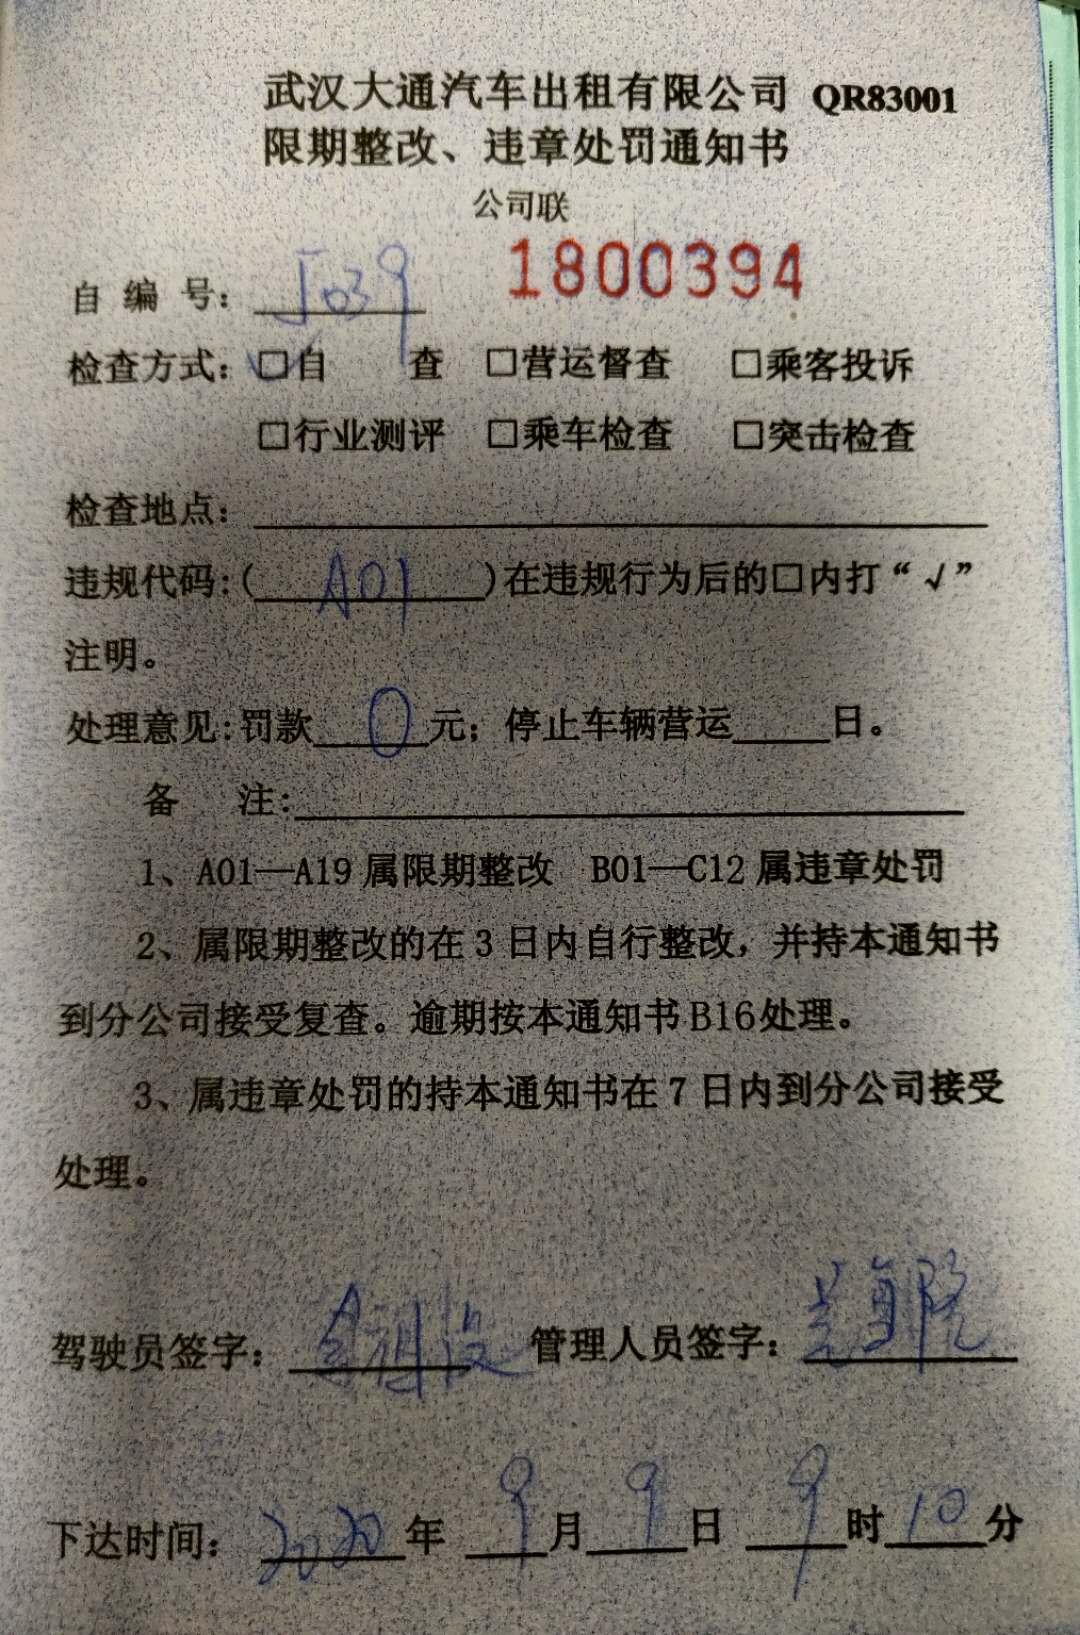 武汉大通汽车出租有限公司 QR83001
限期整改、违章处罚通知书
公司联
1800394
自编号: J039
检查方式: □自 查 □营运督查 □乘客投诉
□行业测评 □乘车检查 □突击检查
检查地点:
违规代码:( A01 )在违规行为后的□内打“√”
注明。
处理意见:罚款 0 元; 停止车辆营运 日。
备 注:
1、A01—A19 属限期整改 B01—C12 属违章处罚
2、属限期整改的在 3 日内自行整改，并持本通知书
到分公司接受复查。逾期按本通知书 B16 处理。
3、属违章处罚的持本通知书在 7 日内到分公司接受
处理。
驾驶员签字: 管理人员签字:
下达时间: 2020 年 9 月 9 日 9 时 10 分